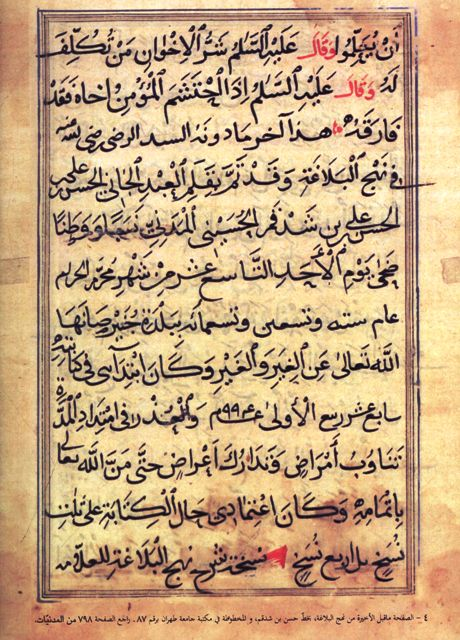 أن يعلموا وقال عليه السلام شر الإخوان من تكلف
له وقال عليه السلام إذا احتشم المؤمن أخاه فقد
فارقه هذا آخر ما دونه السيد الرضي رضي الله عنه
في نهج البلاغة وقد تم بقلم العبد الجاني الحسن بن علي بن
الحسن بن علي بن شدقم الحسيني المدني ووطنا
ضحى يوم الأحد التاسع عشر من شهر محرم الحرام
عام ستة وتسعين وتسعمائة ببلدة صانها
الله تعالى عن الغِيَر والغَيْر وكان ابتدائي في كتابته
سابع عشر ربيع الأولى والعذر في امتداد المدة
تناوب أمراض وتدارك أعراض حتى من الله تعالى
بإتمامه وكان اعتمادي حال الكتابة على ثلاث
نسخ بل أربع نسخ نسخة شرح نهج البلاغة للعلامة
٤ - الصفحة ماقبل الأخيرة من نهج البلاغة، بخط حسن بن شدقم، و المخطوطة في مكتبة جامعة طهران برقم ٨٧. راجع الصفحة ٧٩٨ من المدنيات.